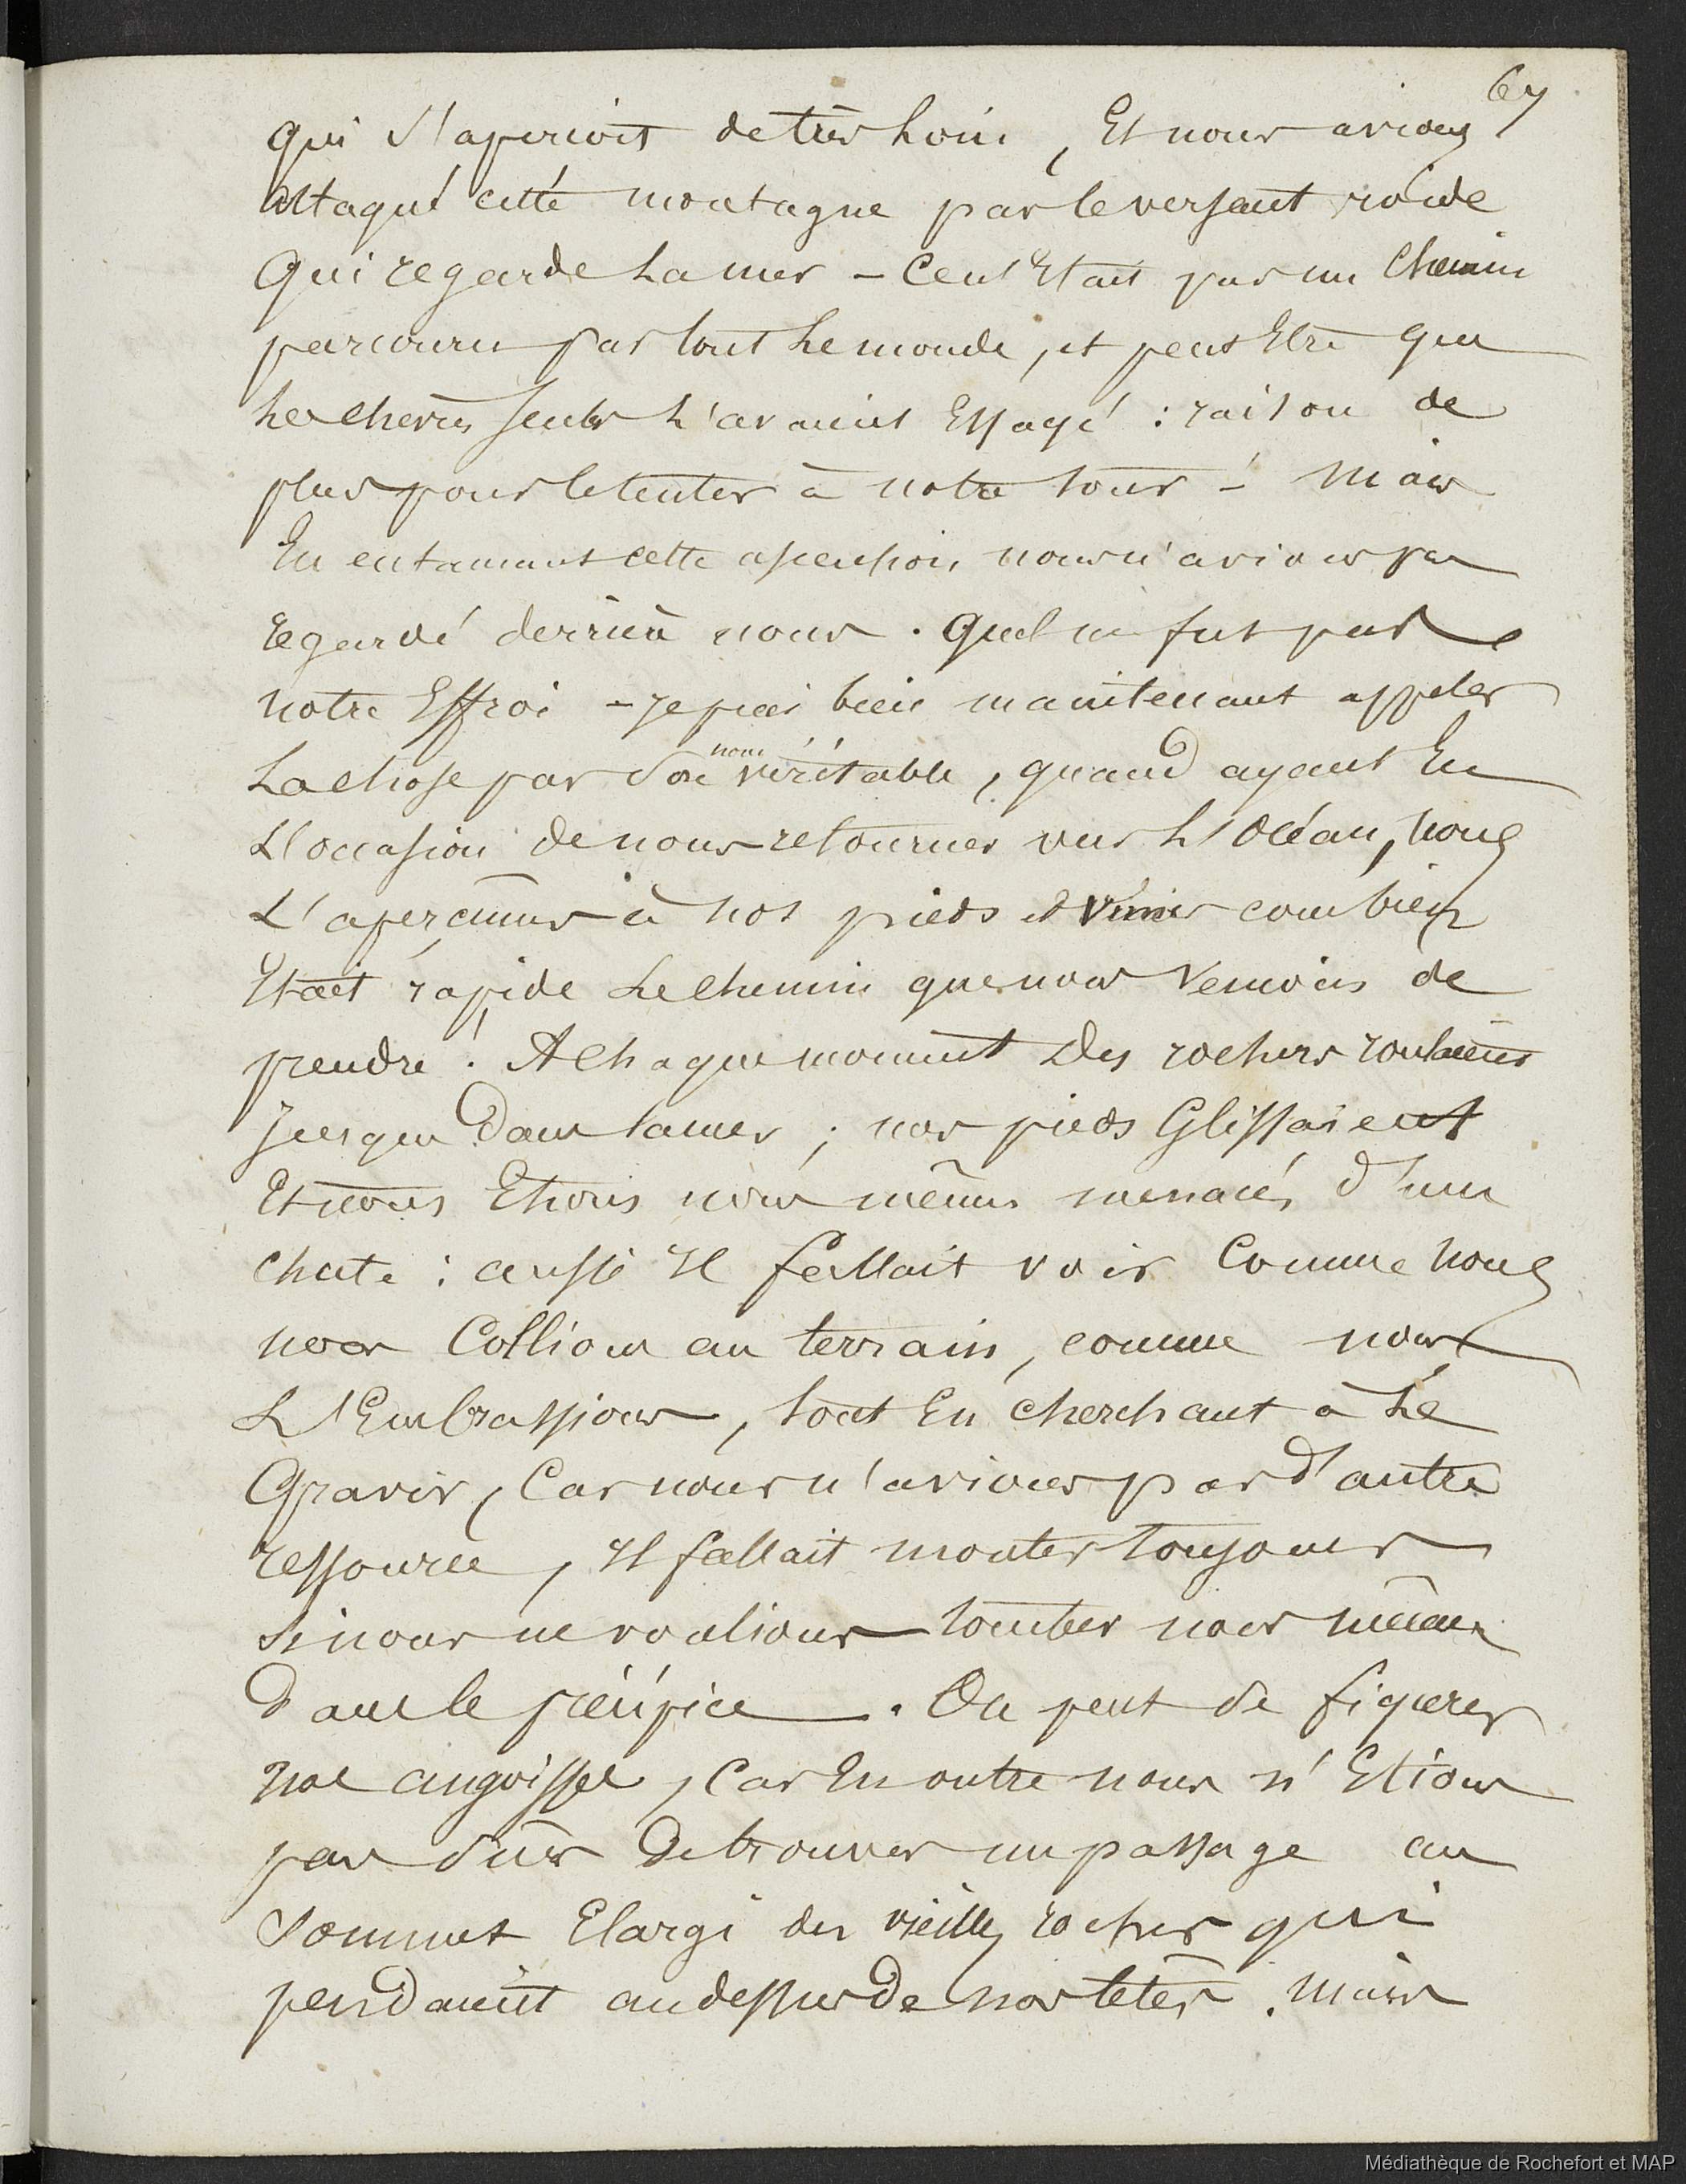 67
qui s'apercoit de très loin, Et nous avions
attaqué cette montagne par le versant roide
Qui regarde La mer – Ce n'Etait pas un Chemin
parcouru par tout Le monde, et peut Etre que
Les chevres seules L'avaient Essayé : raison de
plus pour le tenter à notre tour – Mais
En entamant cette ascension, nous n'avions pas
regardé derrière nous. Quel ne fut pas
notre Effroi – Je puis bien maintenant appeler
La chose par son nom véritable, quand ayant Eu
L'occasion de nous retourner vers L'Océan, nous
L'aperçûmes à nos pieds et vîmes combien
Etait rapide Le chemin que nous Venions de
prendre ! A Chaque moment Des rochers roulaient
Jusque Dans la mer ; nos pieds Glissaient
Et nous Etions nous mêmes menacés d'une
chute : aussi Il fallait voir Comme nous
nous Collions au terrain, comme nous
L'Embrassions, tout En cherchant à Le
Gravir, Car nous n'avions pas d'autre
ressource, Il fallait monter toujours
Si nous ne voulions tomber nous même
Dans le précipice. On peut se figurer
nos angoisses, Car En outre nous n'Etions
pas sûrs De trouver un passage au
Sommet Elargi des vieilles roches qui
pendaient au dessus De nos têtes. Mais
Médiathèque de Rochefort et MAP